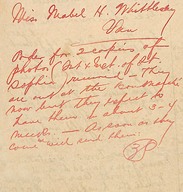 Miss Mabel H. Whittlesey
Van
Order for 2 copies of
photos (Int & Ext. of St.
Sophia) received - They
are out at the
now but they expect to
have them in about 3-4
weeks - As soon as they
come will send them.